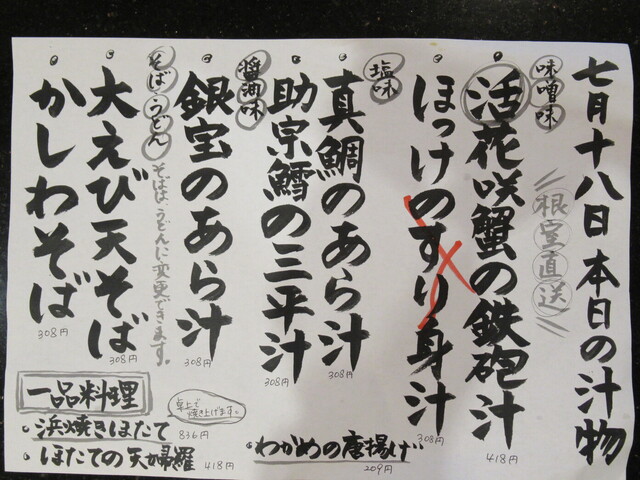 七月十八日本日の汁物
味噌味
活花咲蟹の鉄砲汁
418円
根室直送
ほっけのすり身汁
308円
塩味
真鯛のあら汁
308円
助宗鱈の三平汁
308円
醤油味
銀宝のあら汁
308円
そば・うどん
そばは、うどんに変更できます。
大えび天そば
308円
かしわそば
308円
一品料理
浜焼きほたて 836円
卓上で焼き上げます。
ほたての天婦羅 418円
わかめの唐揚げ
209円